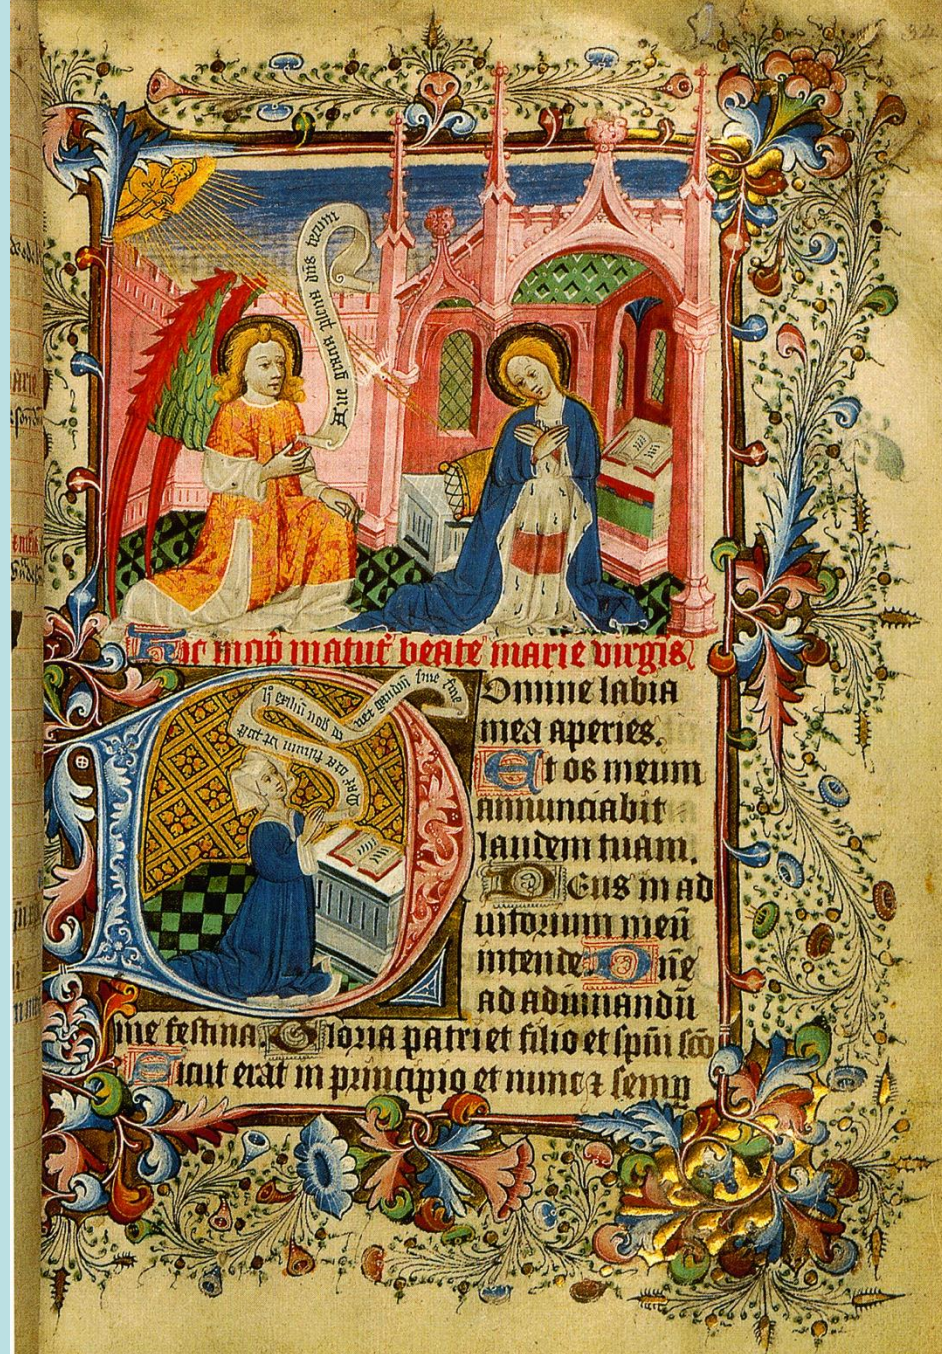 Aue gracia plena dn̄s tecum
Hic incip̄ matut̄ beate marie virgis
Domine labia
mea aperies.
Et os meum
annunciabit
laudem tuam.
Deus in ad
iutorium meū
intende Dn̄e
ad adiuuandū
me festina. Gloria patri et filio et sp̄ui scō
Sicut erat in principio et nunc ⁊ semp